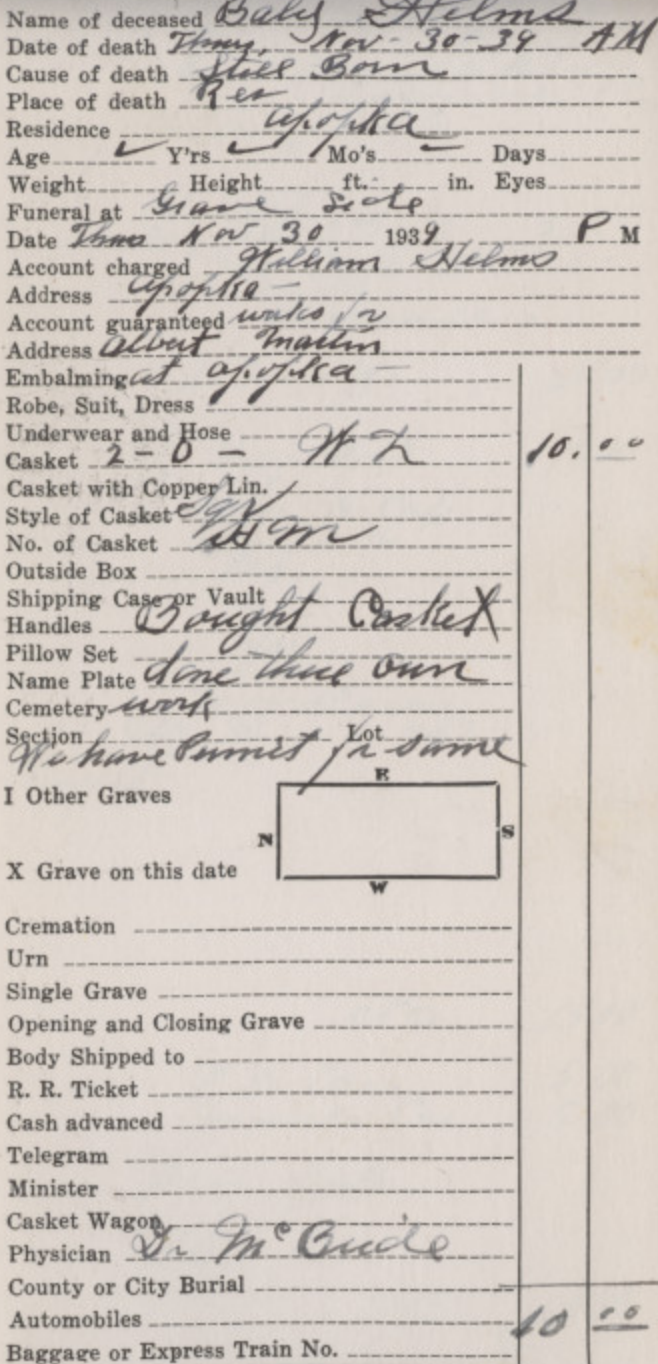 Name of deceased Baby Helms
Date of death Thurs, Nov - 30 - 39 AM
Cause of death Still Born
Place of death Res
Residence apopka
Age Y'rs Mo's Days
Weight Height ft. in. Eyes
Funeral at Grave Side
Date Thurs Nov 30 1939 P M
Account charged William Helms
Address apopka
Account guaranteed works for
Address Albert Martin
Embalming at apopka
Robe, Suit, Dress
Underwear and Hose
Casket 2 - 0 - 10. 00
Casket with Copper Lin.
Style of Casket Sqr
No. of Casket
Outside Box
Shipping Case or Vault
Handles Bought Casket X
Pillow Set
Name Plate done thire own
Cemetery work
Section Lot
We have Permit for same
E
I Other Graves
N S
X Grave on this date
W
Cremation
Urn
Single Grave
Opening and Closing Grave
Body Shipped to
R. R. Ticket
Cash advanced
Telegram
Minister
Casket Wagon
Physician Dr McBride
County or City Burial
Automobiles 10 00
Baggage or Express Train No.